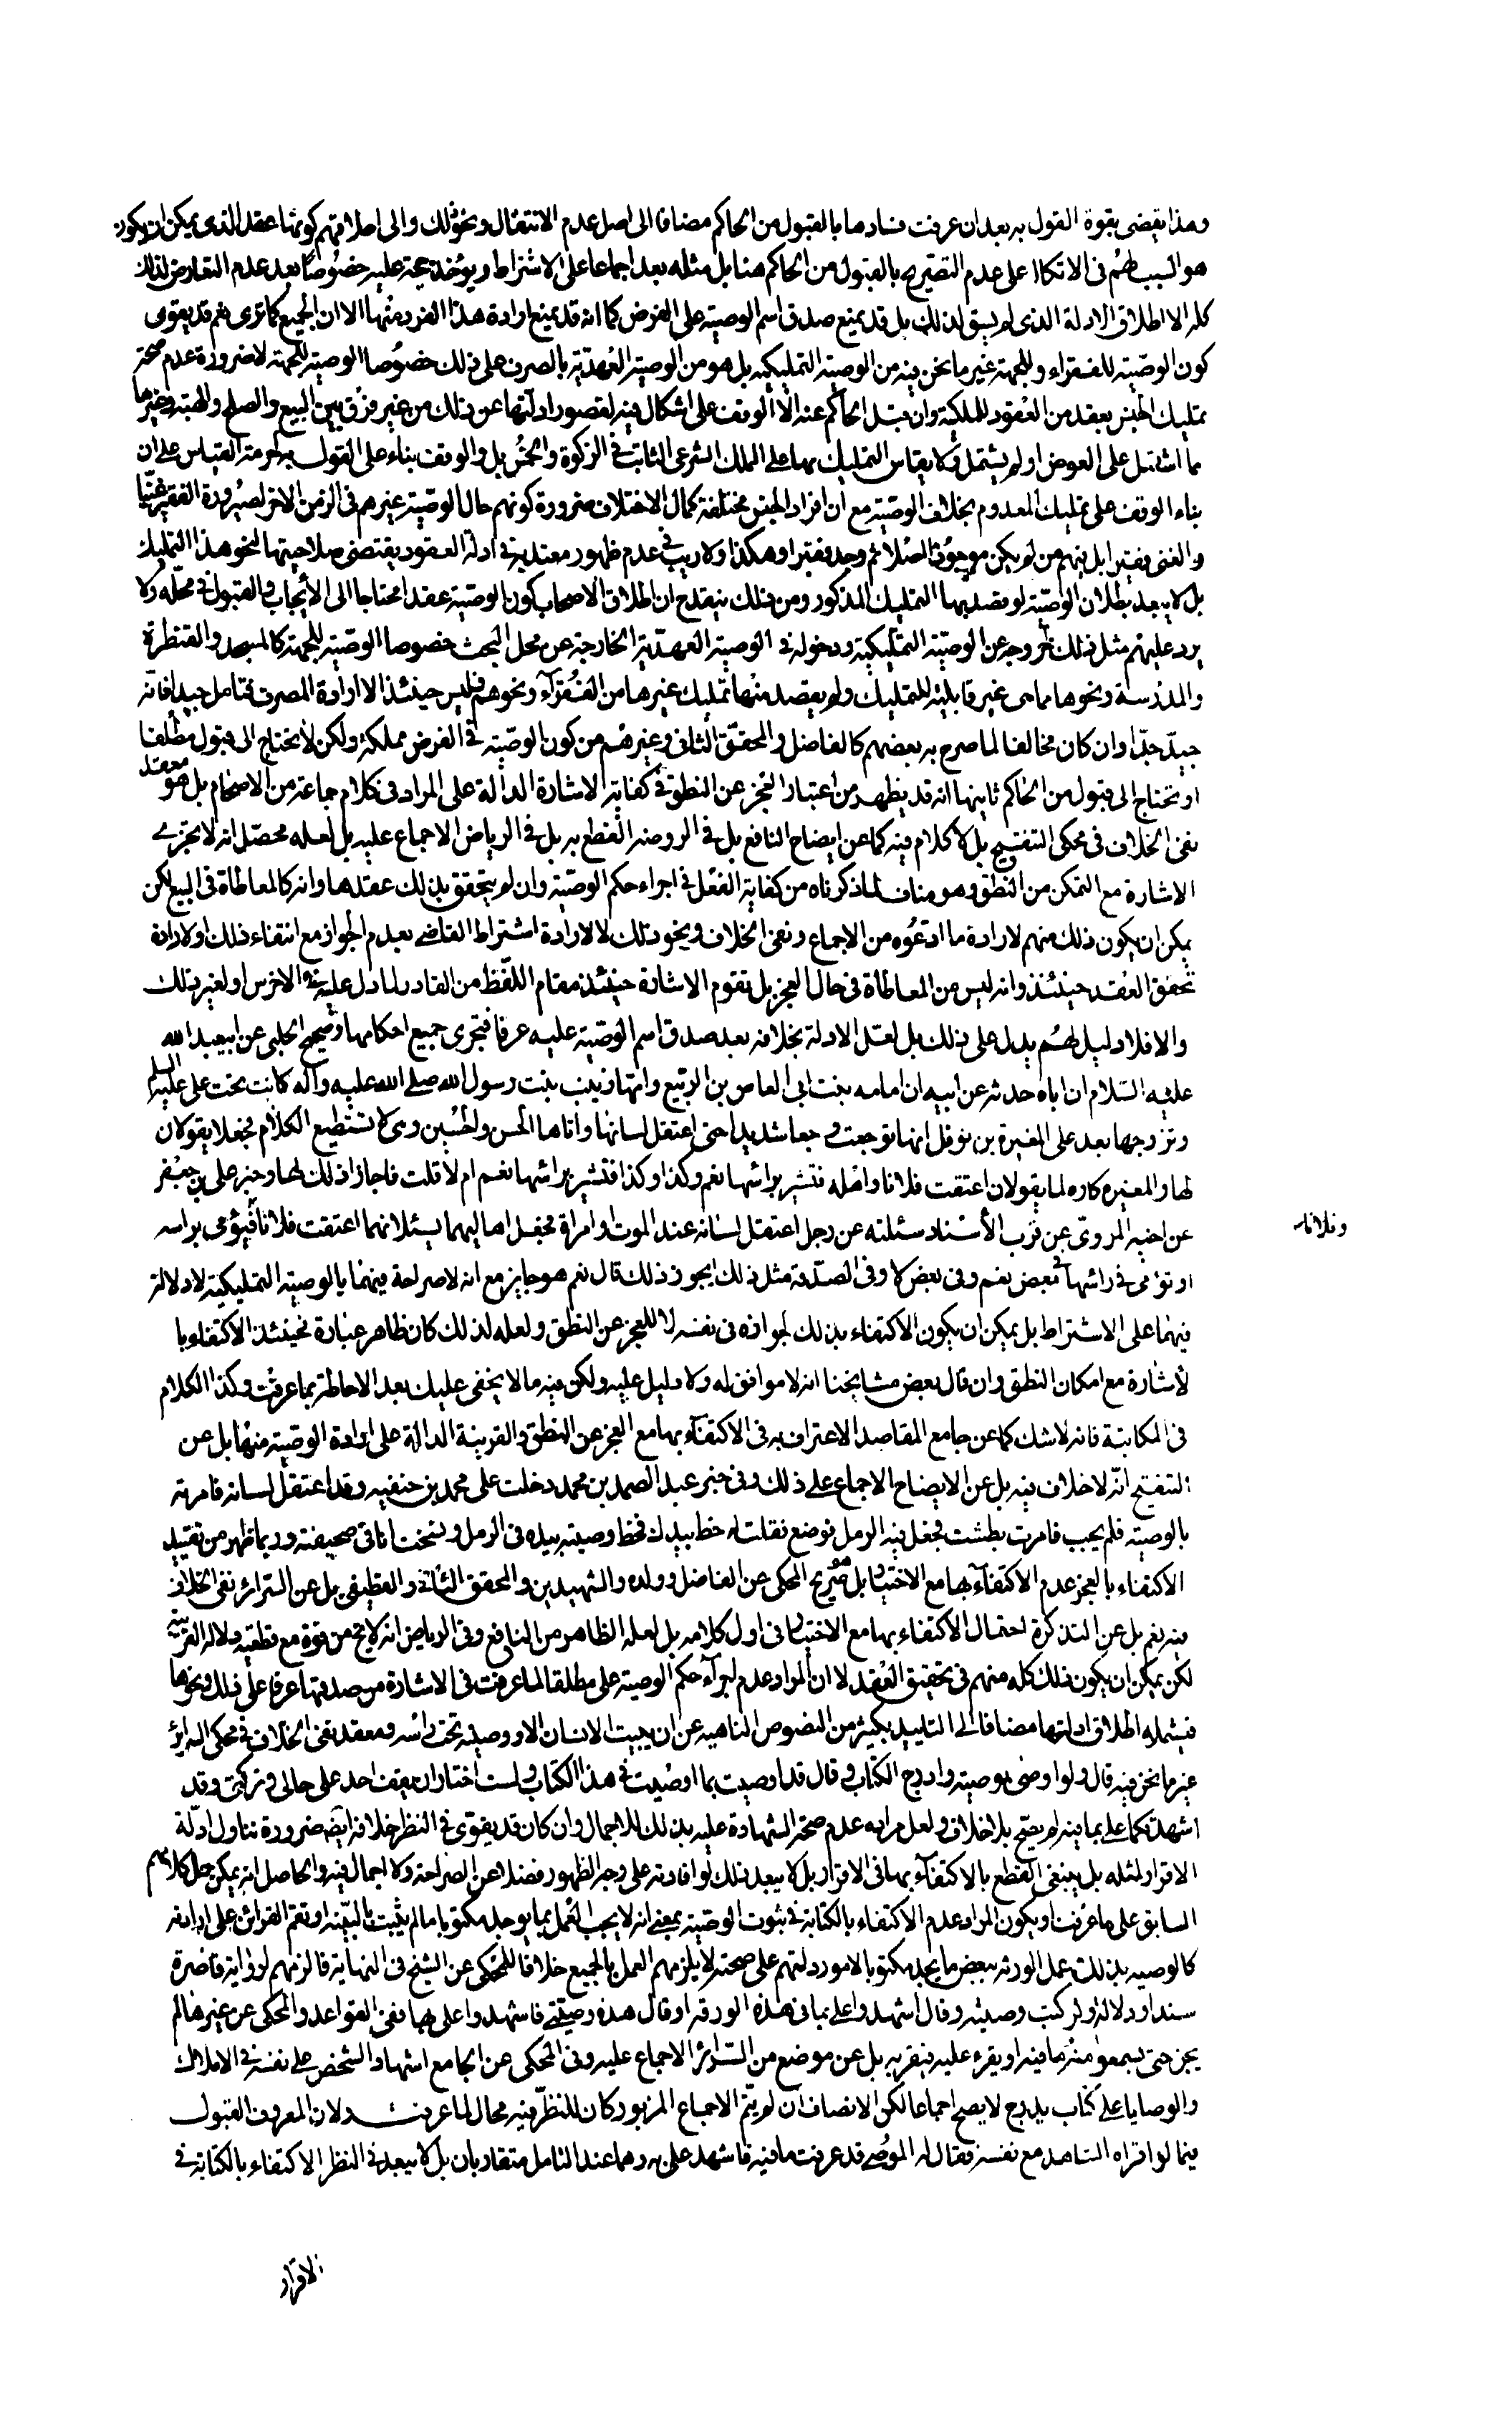 وهذا يقضى بقوة القول به بعد ان عرفت فسادها بالقبول من الحاكم مضافا الى اصل عدم الانتقال ونحو ذلك والى اطلاقهم كونها عقد الذى يمكن ان يكون
هو السبب لهم فى الاتكال على عدم التصريح بالقبول من الحاكم هنا بل مثله بعد اجماعا على الاشتراط ويؤخذ حجة عليه خصوصا بعد عدم التعارض لذلك
كله الا اطلاق الادلة الذى لم يسق لذلك بل قد يمنع صدق اسم الوصية على الفرض كما انه قد يمنع ارادة هذا الفرد منها الا ان الجميع كما ترى نعم قد يقوى
كون الوصية للفقراء وللجهة غير ما نحن فيه من الوصية التمليكيه بل هو من الوصية العهدية بالصرف على ذلك خصوصا الوصية للجهة لا ضرورة عدم صحة
تمليك الجنس بعقد من العقود المملكة وان قبل الحاكم عنه الا الوقف على اشكال فيه لقصور ادلتها عن ذلك من غير فرق بين البيع والصلح والهبة وغيرها
مما اشتمل على العوض او لم يشتمل ولا يقاس التمليك بها على الملك الشرعى الثابت فى الزكوة والخمس بل والوقف بناء على القول به لحرمة القياس على ان
بناء الوقف على تمليك المعدوم بخلاف الوصية مع ان افراد الجنس مختلفة كمال الاختلاف ضرورة كونهم حال الوصية غيرهم فى الزمن الاخر لصيرورة الفقير غنيا
والغنى فقيرا بل فيهم من لم يكن موجودا اصلا ثم وجد فقيرا وهكذا ولا ريب فى عدم ظهور معتد به فى ادلة العقود يقتضى صلاحيتها لنحو هذا التمليك
بل لا يبعد بطلان الوصية لو قصد بها التمليك المذكور ومن ذلك ينقدح ان اطلاق الاصحاب كون الوصية عقدا محتاجا الى الايجاب والقبول فى محله ولا
يرد عليهم مثل ذلك لخروجه عن الوصية التمليكية ودخوله فى الوصية العهدية الخارجة عن محل البحث خصوصا الوصية للجهة كالمسجد والقنطرة
والمدرسة ونحوها مما هى غير قابلية للتمليك ولم يقصد منها تمليك غيرها من الفقراء ونحوهم فليس حينئذ الا ارادة المصرف فتامل جيدا فانه
جيد جدا وان كان مخالفا لما صرح به بعضهم كالفاضل والمحقق الثانى وغيرهم من كون الوصية فى الفرض مملكة ولكن لا يحتاج الى قبول مطلقا
او تحتاج الى قبول من الحاكم ثانيها انه قد يظهر من اعتبار العجز عن النطق فى كفاية الاشارة الدالة على المراد فى كلام جماعة من الاصحاب بل هو معقد
نفى الخلاف فى محكى التنقيح بل لا كلام فيه كما عن ايضاح النافع بل فى الروضه القطع به بل فى الرياض الاجماع عليه بل لعله محصل انه لا تجزى
الاشارة مع التمكن من النطق وهو مناف لما ذكرناه من كفاية الفعل فى اجراء حكم الوصية وان لم يتحقق بذلك عقدها وانه كالمعاطاة فى البيع لكن
يمكن ان يكون ذلك منهم لارادة ما ادعوه من الاجماع ونفى الخلاف ونحو ذلك لا لارادة اشتراط القاضى بعدم الجواز مع انتفاء ذلك او لارادة
تحقق العقد حينئذ وانه ليس من المعاطاة فى حال العجز بل تقوم الاشارة حينئذ مقام اللفظ من القادر لما دل عليه فى الاخرس او لغير ذلك
والا فلا دليل لهم يدل على ذلك بل لعل الادلة بخلافه بعد صدق اسم الوصية عليه عرفا فتجرى جميع احكامها وصحيح الحلبى عن ابيعبد الله
عليه السلام ان اباه حدثه عن ابيه ان امامه بنت ابى العاص بن الربيع وامها زينب بنت رسول الله صلى الله عليه وآله كانت تحت على عليه السلم
وتزوجها بعد على المغيرة بن نوفل انها توجعت وجعا شديدا حتى اعتقل لسانها واتاها الحسن والحسين وهى لا تستطيع الكلام فجعلا يقولان
لها والمغيره كاره لما يقولان اعتقت فلانا واهله فتشير براسها نعم وكذا وكذا فتشير براسها نعم ام لا قلت فاجازا ذلك لها وخبر على بن جعفر
عن اخيه المروى عن قرب الاسناد سئلته عن رجل اعتقل لسانه عند الموت او امراة فجعل اهاليهما يسئلانهما اعتقت فلانا فيؤمى براسه
وفلانا
او تؤمى فى راسها فى بعض نعم وفى بعض لا وفى الصدقة مثل ذلك ايجوز ذلك قال نعم هو جايز مع انه لا صراحة فيهما بالوصية التمليكية لا دلالة
فيهما على الاشتراط بل يمكن ان يكون الاكتفاء بذلك لجوازه فى نفسه لا للعجز عن النطق ولعله لذلك كان ظاهر عبارة فحينئذ الاكتفاء با
لاشارة مع امكان النطق وان قال بعض مشايخنا انه لا موافق له ولا دليل عليه ولكن فيه ما لا يخفى عليك بعد الاحاطة بما عرفت وكذا الكلام
فى المكاتبة فانه لا شك كما عن جامع المقاصد الاعتراف به فى الاكتفاء بها مع العجز عن النطق والقرينة الدالة على ارادة الوصية منها بل عن
التنقيح انه لا خلاف فيه بل عن الايضاح الاجماع على ذلك وفى خبر عبد الصمد بن محمد دخلت على محمد بن حنفيه وقد اعتقل لسانه فامرته
بالوصية فلم يجب فامرت بطشت فجعل فيه الرمل فوضع فقلت له خط بيدك فخط وصيته بيده فى الرمل ونسخت انا فى صحيفة وربما ظهر من تقييد
الاكتفاء بالعجز عدم الاكتفاء بها مع الاختيار بل هو صريح المحكى عن الفاضل وولده والشهيدين والمحقق الثانى والقطيفى بل عن السرائر نفى الخلاف
فيه نعم بل عن التذكرة احتمال الاكتفاء بها مع الاختيار فى اول كلامه بل لعله الظاهر من النافع وفى الرياض انه لا يخ من قوة مع قطعية دلالة القرينة
لكن يمكن ان يكون ذلك كله منهم فى تحقيق العقد لا ان المراد عدم اجراء حكم الوصية على مطلقا لما عرفت فى الاشارة من صدقها عرفا على ذلك ونحوها
فيشمله اطلاق ادلتها مضافا الى التاييد بكثير من النصوص الناهيه عن ان يبيت الانسان الا ووصيته تحت راسه ومعقد نفى الخلاف فى محكى السرائر
غير ما نحن فيه قال ولو اوصى بوصية وادرج الكتاب وقال قد اوصيت بما اوصيت فى هذا الكتاب ولست اختار ان يقف احد على حالى وتركتى وقد
اشهدتكما على بما فيه لم يصح بلا خلاف ولعل مراده عدم صحة الشهادة عليه بذلك للاجمال وان كان قد يقوى فى النظر خلافه ايضا ضرورة تناول ادلة
الاقرار لمثله بل ينبغى القطع بالاكتفاء بها فى الاقرار بل لا يبعد ذلك لو افادته على وجه الظهور فضلا عن الصراحة ولا اجمال فيه والحاصل انه يمكن حمل كلامهم
السابق على ما عرفت او يكون المراد عدم الاكتفاء بالكتابة فى ثبوت الوصية بمعنى انه لا يجب العمل بما يوجد مكتوبا ما لم يثبت بالبينة او تقم القرائن على ارادته
كالوصيه بذلك عمل الورثه ببعض ما يجد مكتوبا لامور دلتهم على صحته لا يلزمهم العمل بالجميع خلافا للمحكى عن الشيخ فى النهاية فالزمهم لرواية قاصرة
سندا ودلالة ولو كتب وصيته وقال اشهدوا على بما فى هذه الورقه او قال هذه وصيتى فاشهدوا على بها ففى القواعد والمحكى عن غيرها لم
يجز حتى يسمعوا منه ما فيه او يقرء عليه فيقر به بل عن موضع من السرائر الاجماع عليه وفى المحكى عن الجامع اشهاد الشخص على نفسه فى الاملاك
والوصايا على كتاب يدرج لا يصح اجماعا لكن الانصاف ان لم يتم الاجماع المزبور كان للنظر فيه مجال لما عرفت ولان المعروف القبول
فيما لو اقراه الشاهد مع نفسه فقال له الموصى قد عرفت ما فيه فاشهد على به وهما عند التامل متقاربان بل لا يبعد فى النظر الاكتفاء بالكتابة فى
الاقرار